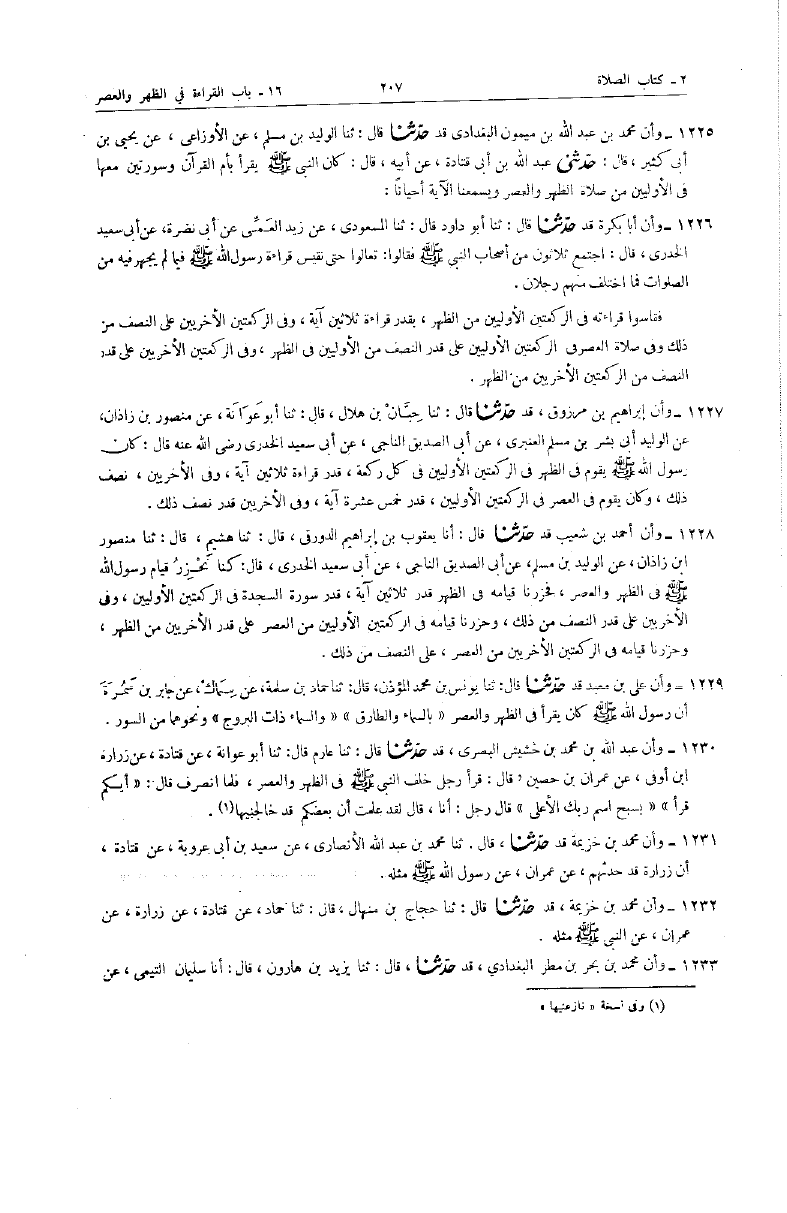 ٢ ـ كتاب الصلاة ٢٠٧ ١٦ ـ باب القراءة في الظهر والعصر
١٢٢٥ ـ وأن محمد بن عبد الله بن ميمون البغدادى قد حدّثنا قال : ثنا الوليد بن مسلم ، عن الأوزاعى ، عن يحيى بن
أبى كثير ، قال : حدّثنى عبد الله بن أبى قتادة ، عن أبيه ، قال : كان النبي ﷺ يقرأ بأم القرآن وسورتين معها
فى الأوليين من صلاة الظهر والعصر ويسمعنا الآية أحياناً :
١٢٢٦ ـ وأن أبا بكرة قد حدّثنا قال : ثنا أبو داود قال : ثنا المسعودى ، عن زيد العَمِّى عن أبى نضرة، عن أبى سعيد
الخدرى ، قال : اجتمع ثلاثون من أصحاب النبي ﷺ فقالوا: تعالوا حتى نقيس قراءة رسول الله ﷺ فيما لم يجهر فيه من
الصلوات فما اختلف منهم رجلان .
فقاسوا قراءته فى الركعتين الأوليين من الظهر ، بقدر قراءة ثلاثين آية ، وفى الركعتين الأخريين على النصف من
ذلك وفى صلاة العصر فى الركعتين الأوليين على قدر النصف من الأوليين فى الظهر ، وفى الركعتين الأخريين على قدر
النصف من الركعتين الأخريين من الظهر .
١٢٢٧ ـ وأن إبراهيم بن مرزوق ، قد حدّثنا قال : ثنا حِبَّان بْن هلال ، قال : ثنا أبو عَوَانَة ، عن منصور بن زاذان،
عن الوليد أبى بشر بن مسلم العنبرى ، عن أبى الصديق الناجى ، عن أبى سعيد الخدرى رضى الله عنه قال : كان
رسول الله ﷺ يقوم فى الظهر فى الركعتين الأوليين فى كل ركعة ، قدر قراءة ثلاثين آية ، وفى الأخريين ، نصف
ذلك ، وكان يقوم فى العصر فى الركعتين الأوليين ، قدر خمس عشرة آية ، وفى الأخريين قدر نصف ذلك .
١٢٢٨ ـ وأن أحمد بن شعيب قد حدّثنا قال : أنا يعقوب بن إبراهيم الدورقى ، قال : ثنا هشيم ، قال : ثنا منصور
ابن زاذان ، عن الوليد بن مسلم، عن أبى الصديق الناجى ، عن أبى سعيد الخدرى ، قال: كنا نَحْزِرُ قيام رسول الله
ﷺ فى الظهر والعصر ، فحزرنا قيامه فى الظهر قدر ثلاثين آية ، قدر سورة السجدة فى الركعتين الأوليين ، وفى
الأخريين على قدر النصف من ذلك ، وحزرنا قيامه فى الركعتين الأوليين من العصر على قدر الأخريين من الظهر ،
وحزرنا قيامه فى الركعتين الأخريين من العصر ، على النصف من ذلك .
١٢٢٩ ـ وأن على بن معبد قد حدّثنا قال: ثنا يونس بن محمد المؤذن، قال: ثنا حماد بن سلمة، عن سِمَاك، عن جابر بن سَمُرَةَ
أن رسول الله ﷺ كان يقرأ فى الظهر والعصر « بالسماء والطارق » « والسماء ذات البروج » ونحوهما من السور .
١٢٣٠ ـ وأن عبد الله بن محمد بن خشيش البصرى ، قد حدّثنا قال : ثنا عارم قال: ثنا أبو عوانة ، عن قتادة ، عن زرارة
ابن أوفى ، عن عمران بن حصين ، قال : قرأ رجل خلف النبي ﷺ فى الظهر والعصر ، فلما انصرف قال : « أيكم
قرأ » « بسبح اسم ربك الأعلى » قال رجل : أنا ، قال لقد علمت أن بعضكم قد خالجنيها(١) .
١٢٣١ ـ وأن محمد بن خزيمة قد حدّثنا ، قال . ثنا محمد بن عبد الله الأنصارى ، عن سعيد بن أبى عروبة ، عن قتادة ،
أن زرارة قد حدثهم ، عن عمران ، عن رسول الله ﷺ مثله .
١٢٣٢ ـ وأن محمد بن خزيمة ، قد حدّثنا قال : ثنا حجاج بن منهال ، قال : ثنا حماد ، عن قتادة ، عن زرارة ، عن
عمران ، عن النبي ﷺ مثله .
١٢٣٣ ـ وأن محمد بن بحر بن مطر البغدادي ، قد حدّثنا ، قال : ثنا يزيد بن هارون ، قال : أنا سليمان التيمى ، عن
(١) وفى نسخة « نازعنيها »